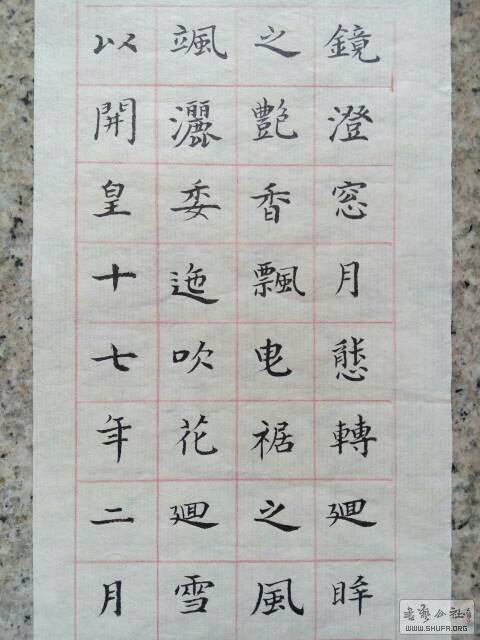 鏡澄窓月態轉廻眸
之艷香飄电裾之風
颯灑委迤吹花廻雪
以開皇十七年二月
书艺公社
WWW.SHUFA.ORG